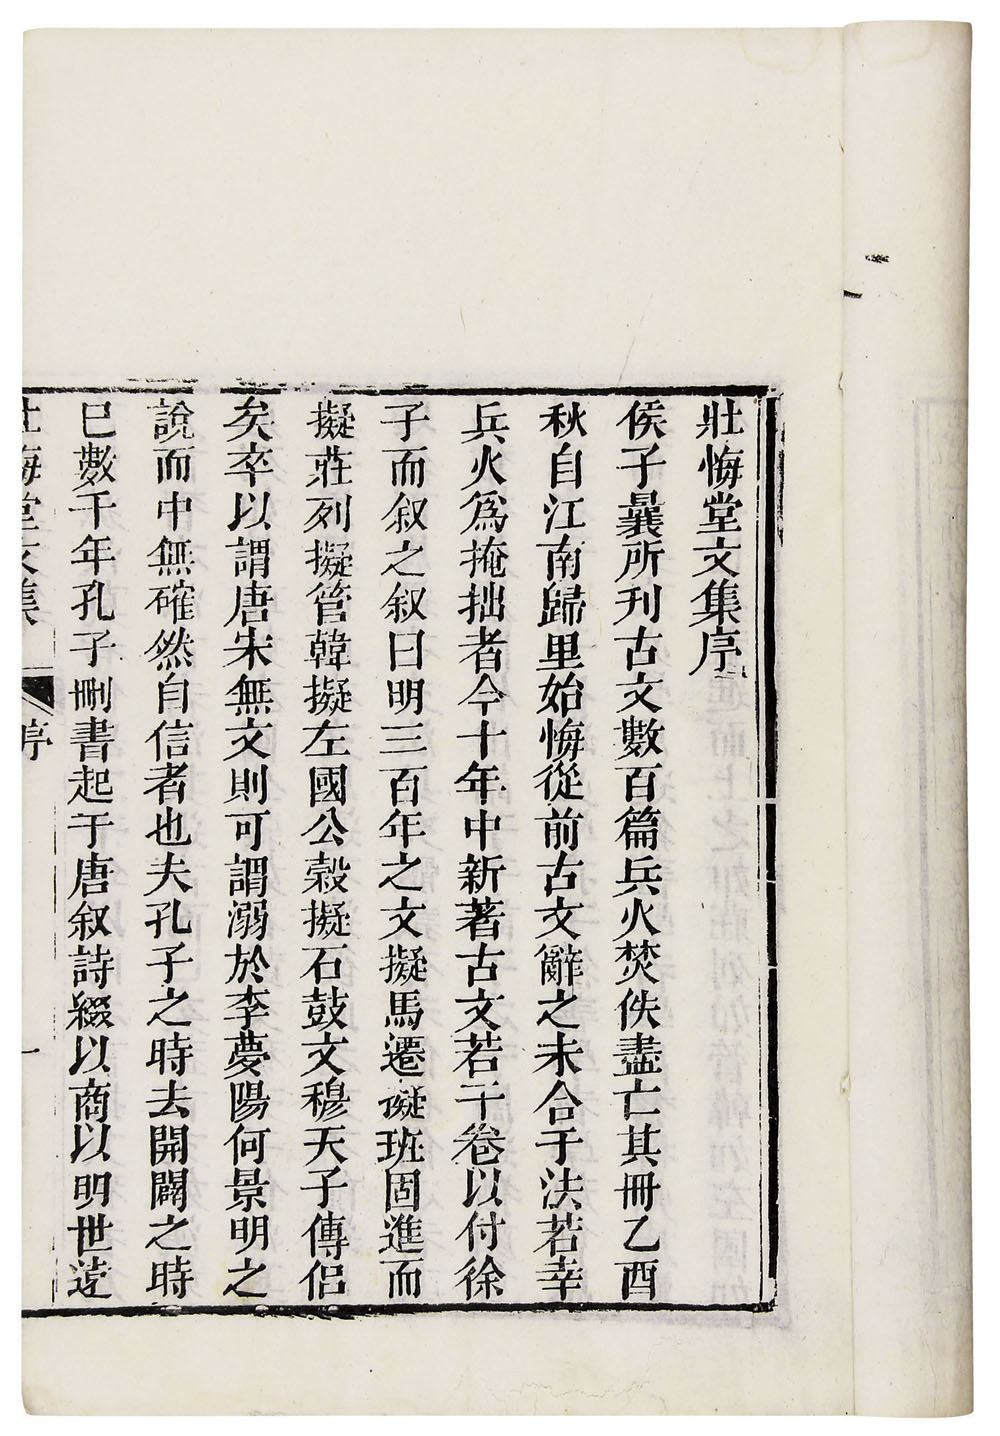 壯悔堂文集序
侯子曩所刊古文數百篇兵火焚佚盡亡其冊乙酉
秋自江南歸里始悔從前古文辭之未合于法若幸
兵火爲掩拙者今十年中新著古文若干卷以付徐
子而叙之叙曰明三百年之文擬馬遷擬班固進而
擬莊列擬管韓擬左國公穀擬石鼓文穆天子傳侣
矣卒以謂唐宋無文則可謂溺於李夢陽何景明之
說而中無確然自信者也夫孔子之時去開闢之時
巳數千年孔子刪書起于唐叙詩綴以商以明世逺
壯悔堂文集 序 一